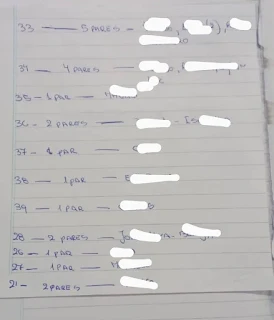 33 — 5 PARES —
34 — 4 PARES —
35 — 1 PAR —
36 — 2 PARES —
37 — 1 PAR —
38 — 1 PAR —
39 — 1 PAR —
28 — 2 PARES —
26 — 1 PAR —
27 — 1 PAR —
21 — 2 PARES —